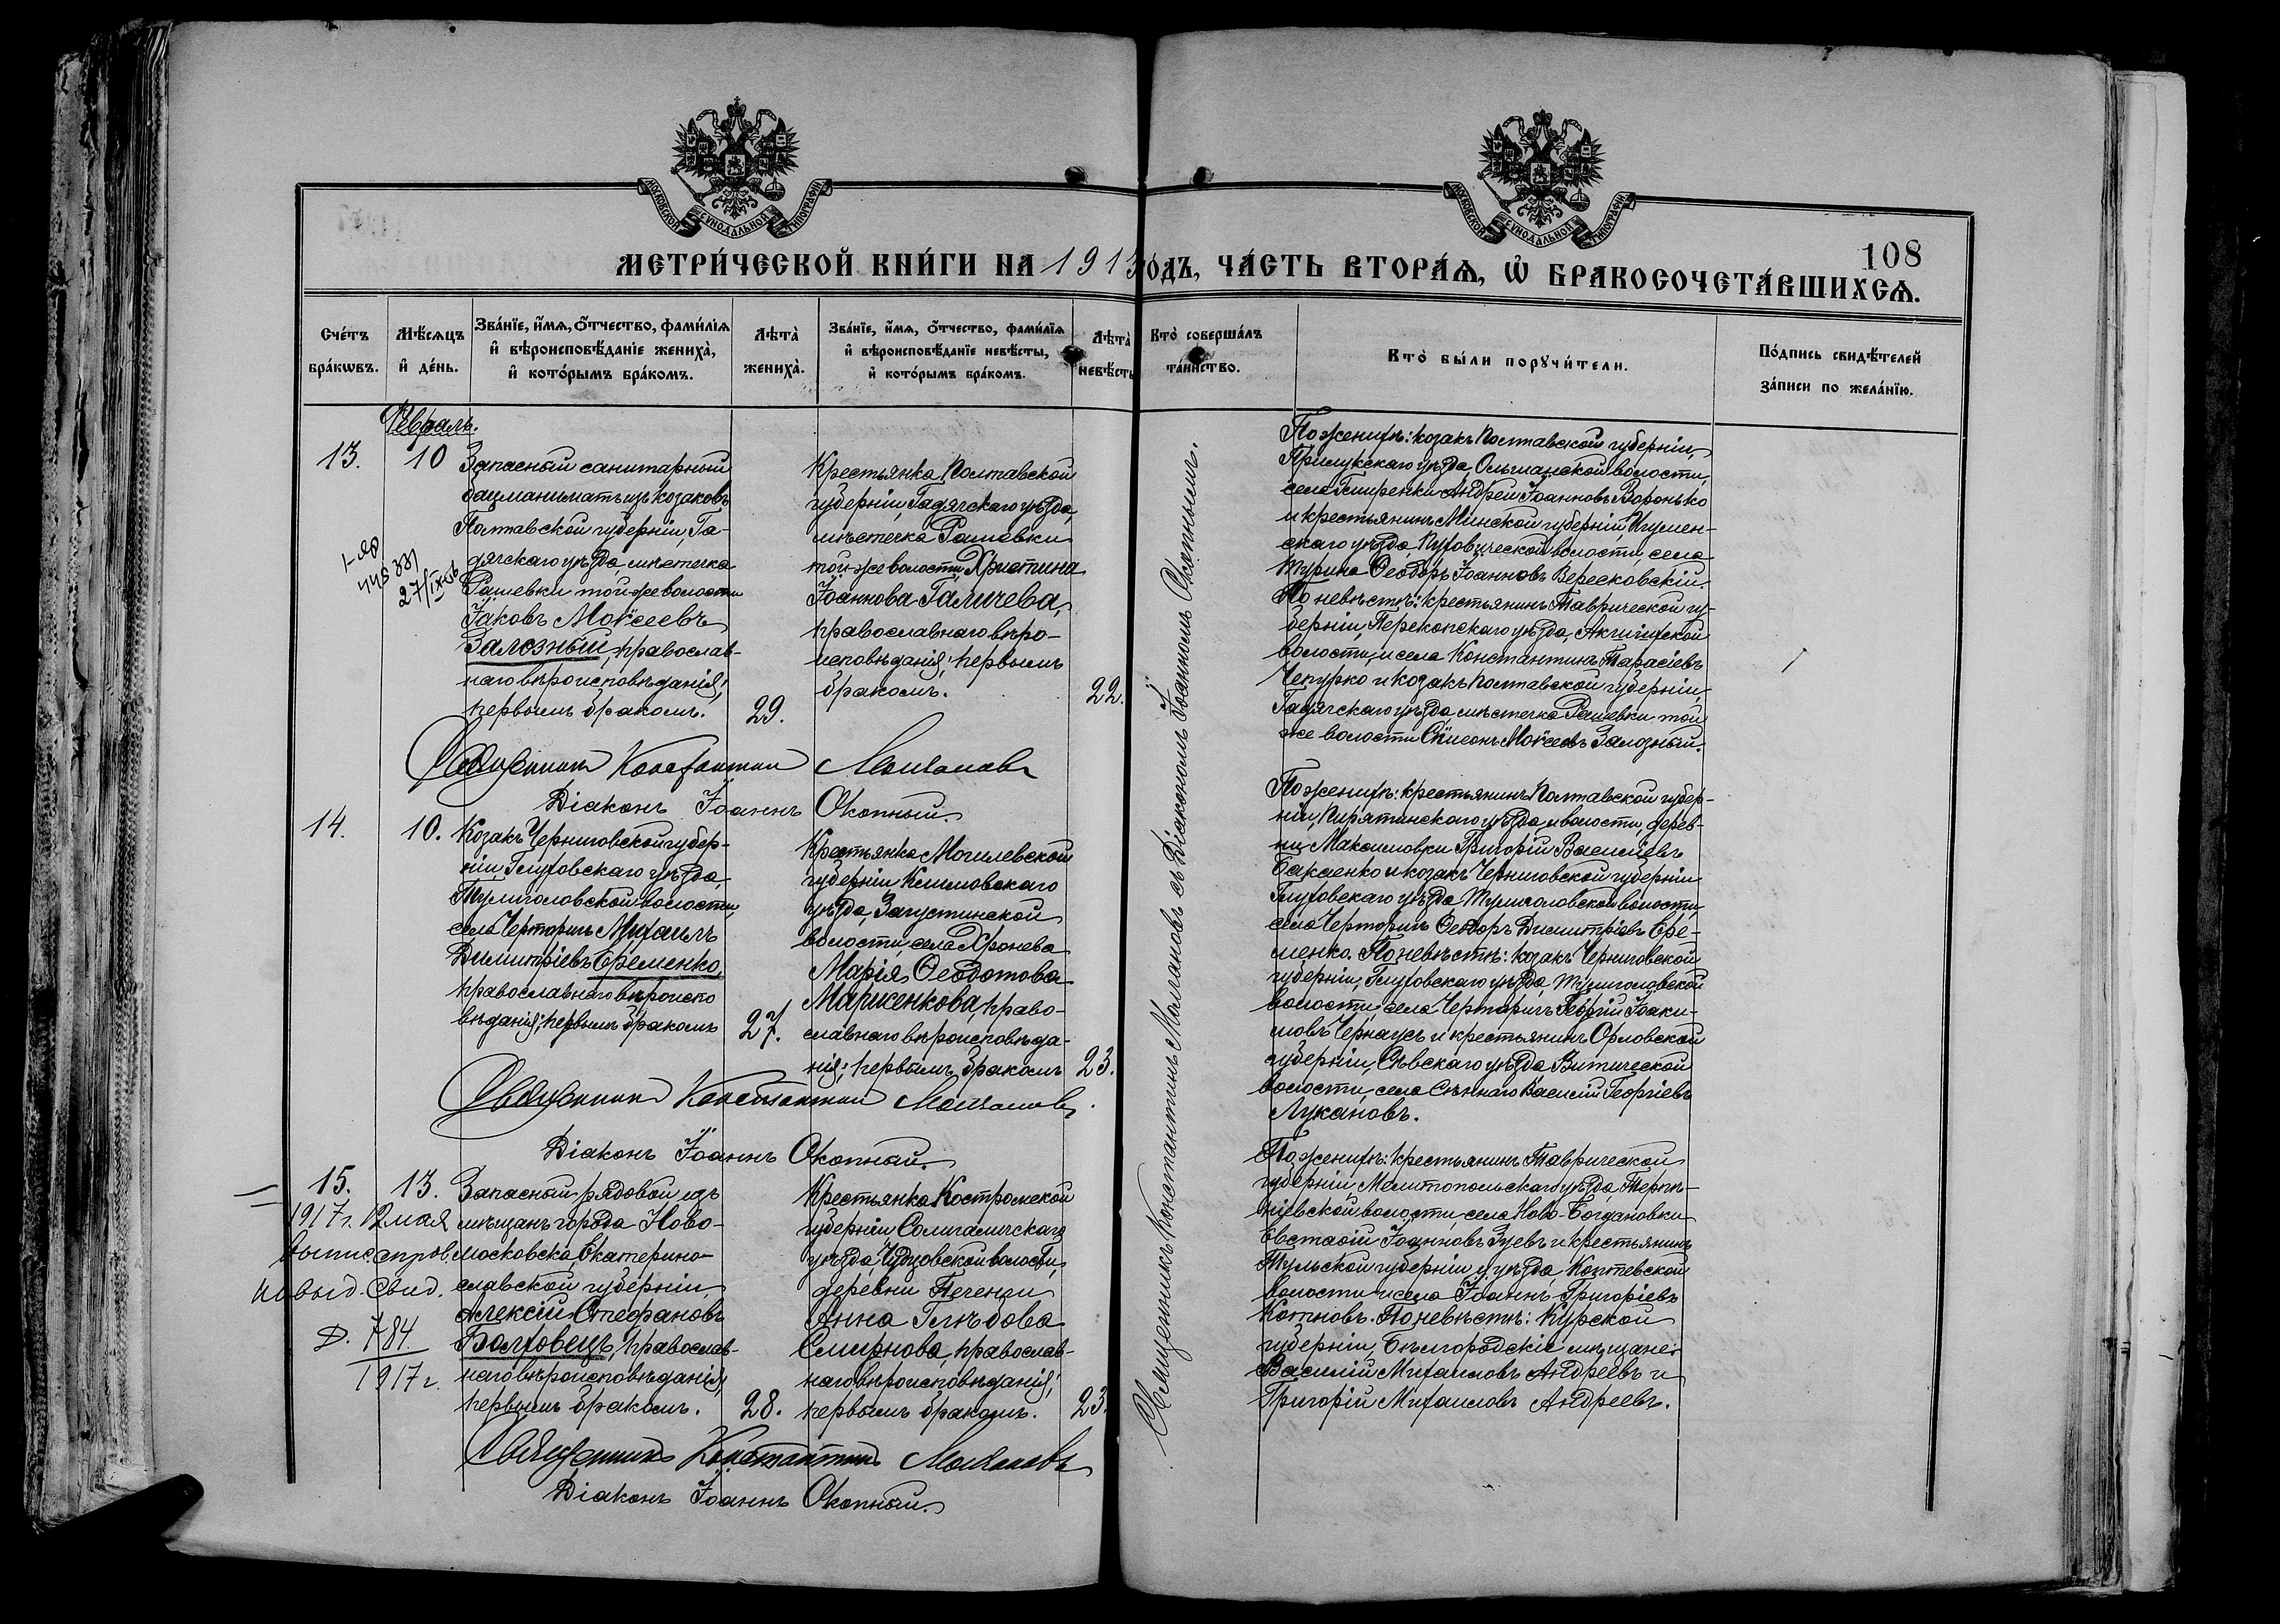 МОСКОВСКОЙ СѴНОДАЛЬНОЙ ТИПОГРАФІИ
МОСКОВСКОЙ СѴНОДАЛЬНОЙ ТИПОГРАФІИ
108
МЕТРИ́ЧЕСКОЙ КНИ́ГИ НА 1913 ГО́ДЪ, ЧА́СТЬ ВТОРА́Ѧ, Ѡ҆ БРАКОСОЧЕТА́ВШИХСѦ.
Сче́тъ бра́кѡвъ.
Мѣ́сѧцъ и҆ де́нь.
Зва́нїе, и҆́мѧ, ѻ҆́тчество, фами́лїѧ и҆ вѣроисповѣ́данїе жениха̀, и҆ кото́рымъ бра́комъ.
Лѣта̀ жениха̀.
Зва́нїе, и҆́мѧ, ѻ҆́тчество, фами́лїѧ и҆ вѣроисповѣ́данїе невѣ́сты, и҆ кото́рымъ бра́комъ.
Лѣта̀ невѣ́сты
Кто̀ соверша́лъ та́инство.
Кто̀ бы́ли порꙋчи́тели.
По́дпись свидѣ́телей за́писи по жела́нїю.
Февраль.
13.
10
Запасный санитарный
изъ козаковъ
Полтавской губерніи, Га-
дячскаго уѣзда, мѣстечка
Рашевки той же волости
Іаковъ Моѵсеевъ
Залозный, православ-
наго вѣроисповѣданія;
первымъ бракомъ.
29.
Крестьянка Полтавской
губерніи, Гадячскаго уѣзда,
мѣстечка Рашевки
той же волости Христина
Іоаннова Галичева,
православнаго вѣро-
исповѣданія; первымъ
бракомъ.
22.
Священникъ Константинъ Молчановъ съ Діакономъ Іоанномъ Окопнымъ.
По женихѣ: козакъ Полтавской губерніи,
Прилукскаго уѣзда, Ольшанской волости,
села Гмиренки Андрей Іоанновъ Воронько
и крестьянинъ Минской губерніи, Игумен-
скаго уѣзда, Пуховической волости, села
Турина Ѳеодоръ Іоанновъ Вересковскій.
По невѣстѣ: крестьянинъ Таврической гу-
берніи, Перекопскаго уѣзда,
волости и села Константинъ Тарасіевъ
Чепурко и козакъ Полтавской губерніи,
Гадячскаго уѣзда, мѣстечка Рашевки той
же волости Сѵмеонъ Моѵсеевъ Залозный.
Священникъ Константинъ Молчановъ
Діаконъ Іоаннъ Окопный.
14.
10.
Козакъ Черниговской губер-
ніи Глуховскаго уѣзда,
Тулиголовской волости,
села Черторигъ Михаилъ
Димитріевъ Еременко,
православнаго вѣроиспо
вѣданія; первымъ бракомъ
27.
Крестьянка Могилевской
губерніи Климовскаго
уѣзда, Загустинской
волости, села Хронева
Марія Ѳеодотова
Марченкова, право-
славнаго вѣроисповѣда-
нія; первымъ бракомъ
23.
По женихѣ: крестьянинъ Полтавской губер-
ніи, Пирятинскаго уѣзда и волости, дерев-
ни Максимовки Григорій Василіевъ
Бакаенко и козакъ Черниговской губерніи
Глуховскаго уѣзда, Тулиголовской волости,
села Черторигъ Ѳеодоръ Димитріевъ Ере-
менко. По невѣстѣ: козакъ Черниговской
губерніи, Глуховскаго уѣзда, Тулиголовской
волости, села Черторигъ Георгій Іоаки-
мовъ Чернаусъ и крестьянинъ Орловской
губерніи, Сѣвскаго уѣзда, Витической
волости, села Сѣннаго Василій Георгіевъ
Лукановъ.
Священникъ Константинъ Молчановъ.
Діаконъ Іоаннъ Окопный.
15.
13.
1917 г. 12 мая
и выд. Свид.
784.
1917 г.
Запасный рядовой изъ
мѣщанъ города Ново-
московска, Екатерино-
славской губерніи,
Алексій Стефановъ
Болховецъ, православ-
наго вѣроисповѣданія;
первымъ бракомъ.
28.
Крестьянка Костромской
губерніи Солигаличскаго
уѣзда, Чудцовской волости,
деревни Печенги
Анна Глѣбова
Смирнова, православ-
наго вѣроисповѣданія;
первымъ бракомъ.
23.
По женихѣ: крестьянинъ Таврической
губерніи Мелитопольскаго уѣзда, Терпѣ-
ніевской волости, села Ново-Богдановки
Евстаѳій Іоанновъ Зуевъ и крестьянинъ
Тульской губерніи и уѣзда, Коптевской
волости и села Іоаннъ Григоріевъ
Котновъ. По невѣстѣ: Курской
губерніи, Бѣлгородскіе мѣщане:
Василій Михаиловъ Андреевъ и
Григорій Михаиловъ Андреевъ.
Священникъ Константинъ Молчановъ
Діаконъ Іоаннъ Окопный.